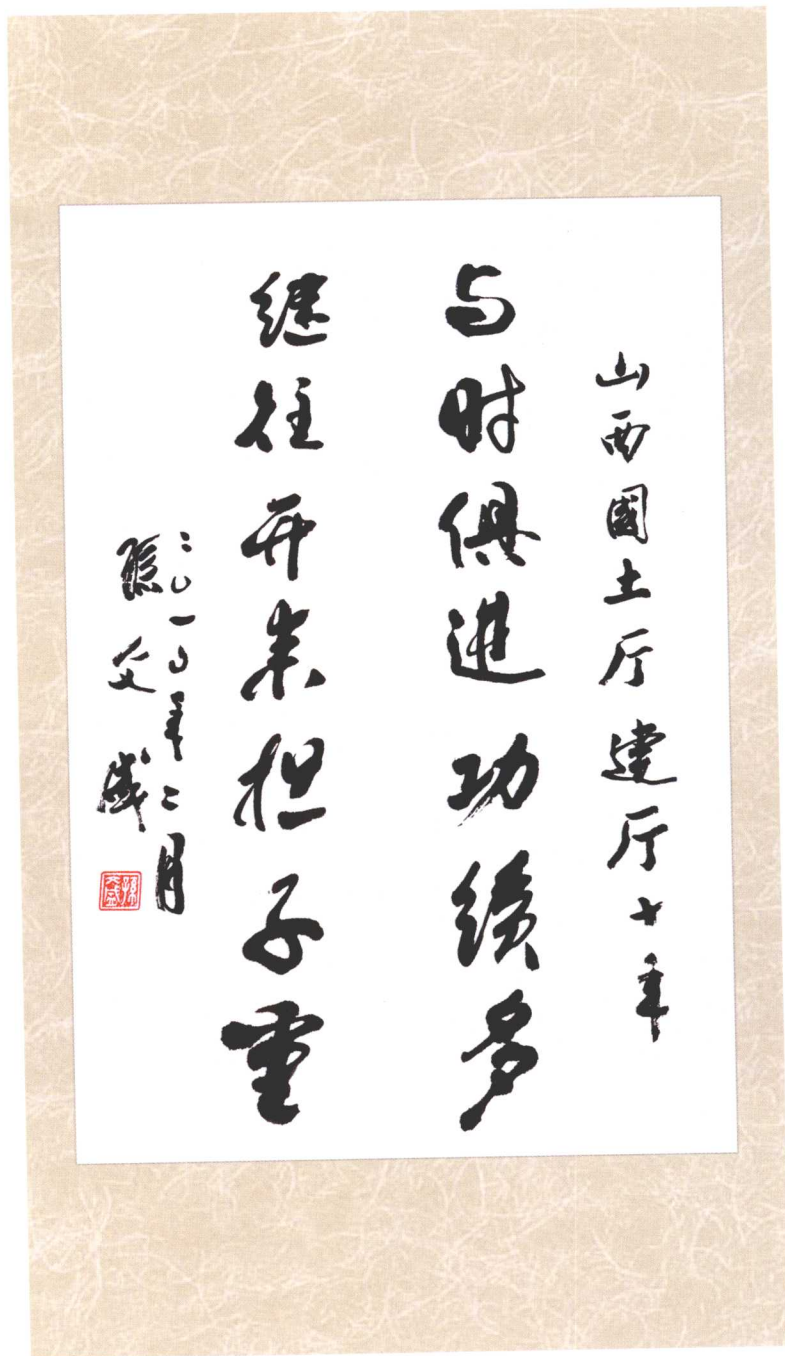 山西國土厅建厅十年
与时俱進功绩多
继往开来担子重
二〇一〇年二月
孫文盛
孫文盛